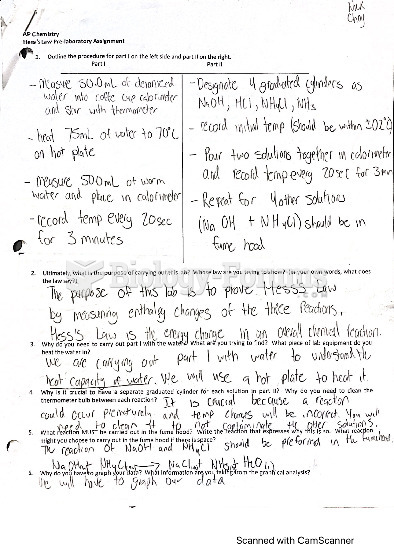 Nick
AP Chemistry
Hess's Law Pre-laboratory Assignment
1. Outline the procedure for part I on the left side and part II on the right.
Part I
Part II
- measure 50.0mL of deionized
water into coffee cup calorimeter
and stir with thermometer
- heat 75mL of water to 70°C
on hot plate
- measure 50.0mL of warm
water and place in calorimeter
- record temp every 20sec
for 3 minutes
- Designate 4 graduated cylinders as
NaOH, HCl, NH4Cl, NH3
- record initial temp (should be within ±0.2°C)
- Pour two solutions together in calorimeter
and record temp every 20sec for 3min
- Repeat for 4 other solutions
(NaOH + NH4Cl) should be in
fume hood
2. Ultimately, what is the purpose of carrying out this lab? Whose law are you trying to show? In your own words, what does
the law say?
The purpose of this lab is to prove Hess's Law
by measuring enthalpy changes of the three reactions.
Hess's Law is the energy change in an overall chemical reaction.
3. Why do you need to carry out part I with the water? What are you trying to find? What piece of lab equipment do you
heat the water in?
We are carrying out part I with water to understand the
heat capacity of water. We will use a hot plate to heat it.
4. Why is it crucial to have a separate graduated cylinder for each solution in part II? Why do you need to clean the
thermometer between each reaction?
It is crucial because a reaction
could occur prematurely and temp changes will be incorrect. You will
need to clean it to not contaminate the other solutions.
5. What reaction MUST be carried out in the fume hood? Write the reaction that expresses why this is so. What reaction
might you choose to carry out in the fume hood if there is space?
The reaction of NaOH and NH4Cl should be preformed in the fumehood.
5. Why do you have to graph your data? What information are you taking from the graphical analysis?
We will have to graph our data
Scanned with CamScanner